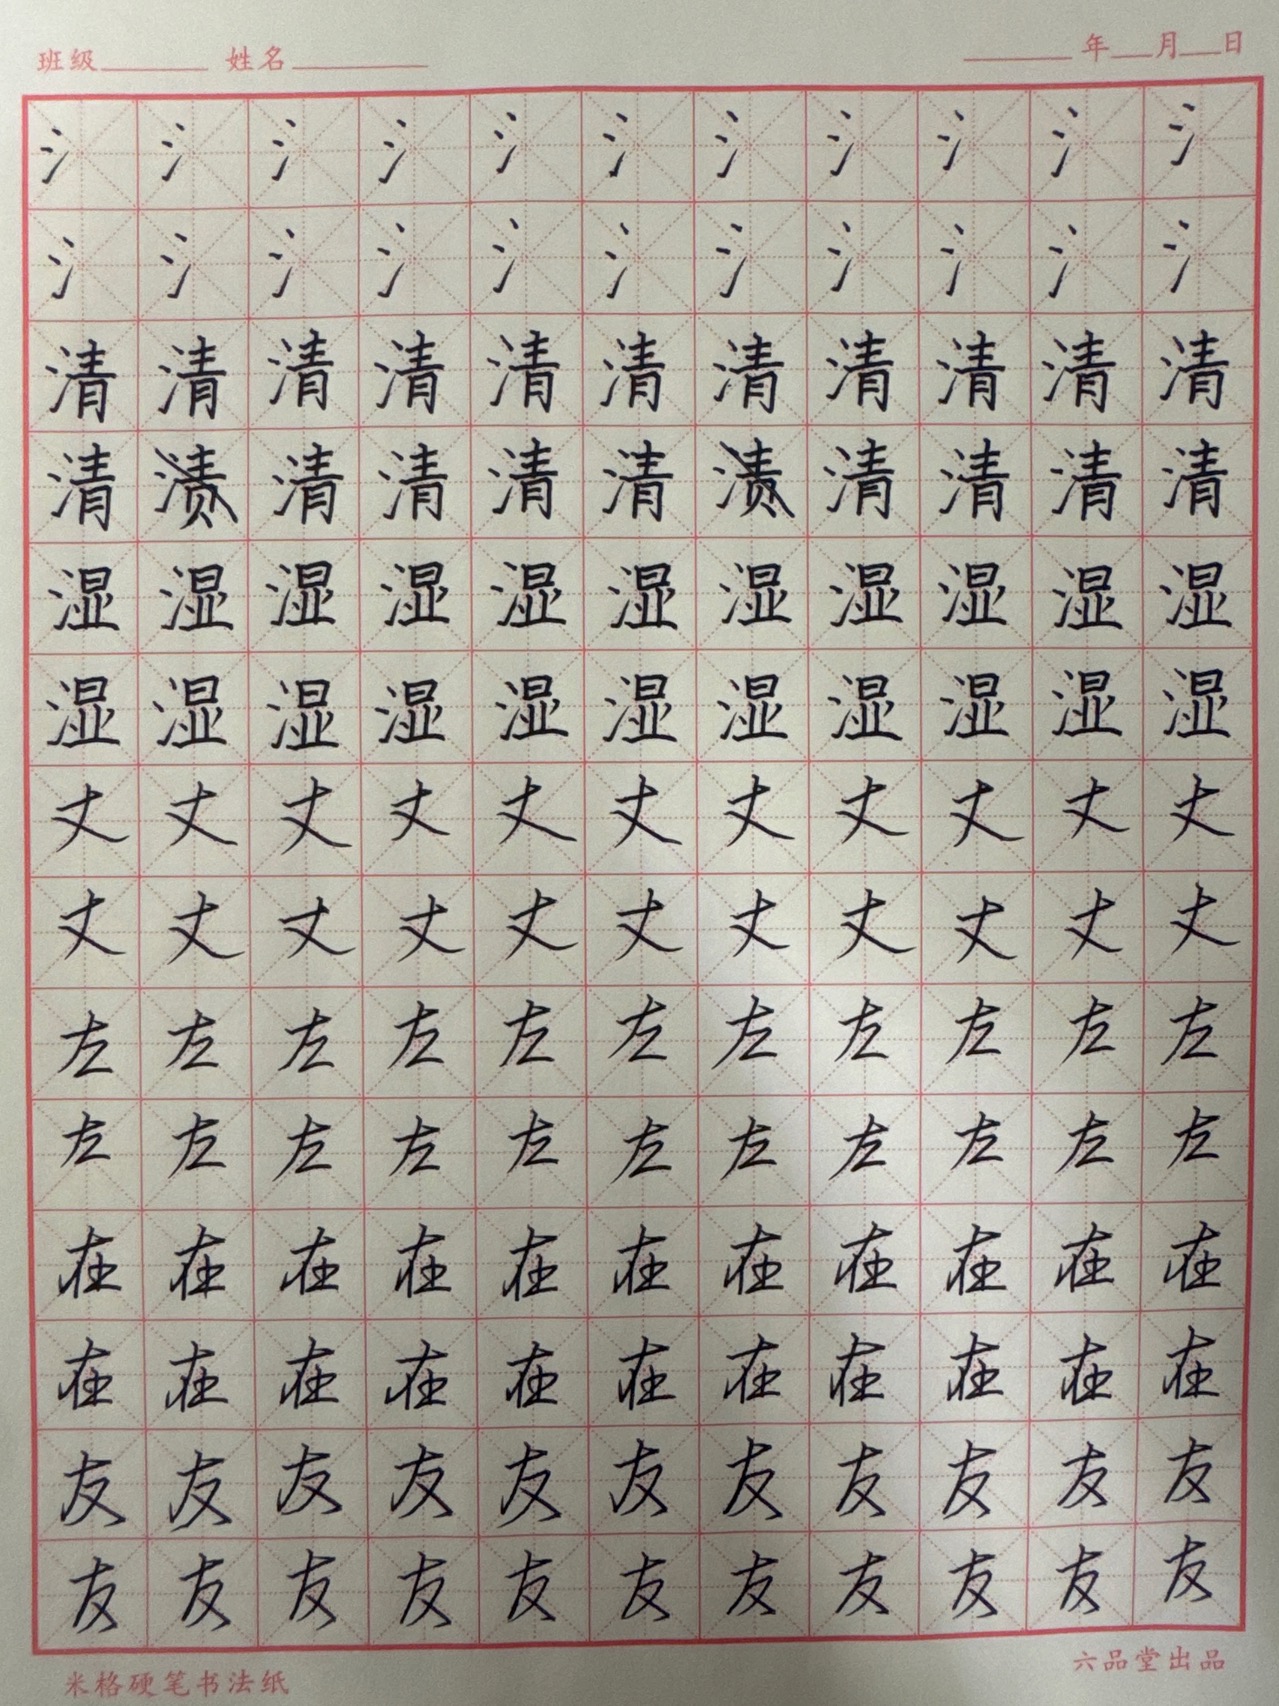 班级 姓名 年 月 日
氵氵氵氵氵氵氵氵氵氵氵
氵氵氵氵氵氵氵氵氵氵氵
清清清清清清清清清清清
清渍清清清清渍清清清清
湿湿湿湿湿湿湿湿湿湿湿
湿湿湿湿湿湿湿湿湿湿湿
丈丈丈丈丈丈丈丈丈丈丈
丈丈丈丈丈丈丈丈丈丈丈
左左左左左左左左左左左
左左左左左左左左左左左
在在在在在在在在在在在
在在在在在在在在在在在
友友友友友友友友友友友
友友友友友友友友友友友
米格硬笔书法纸 六品堂出品